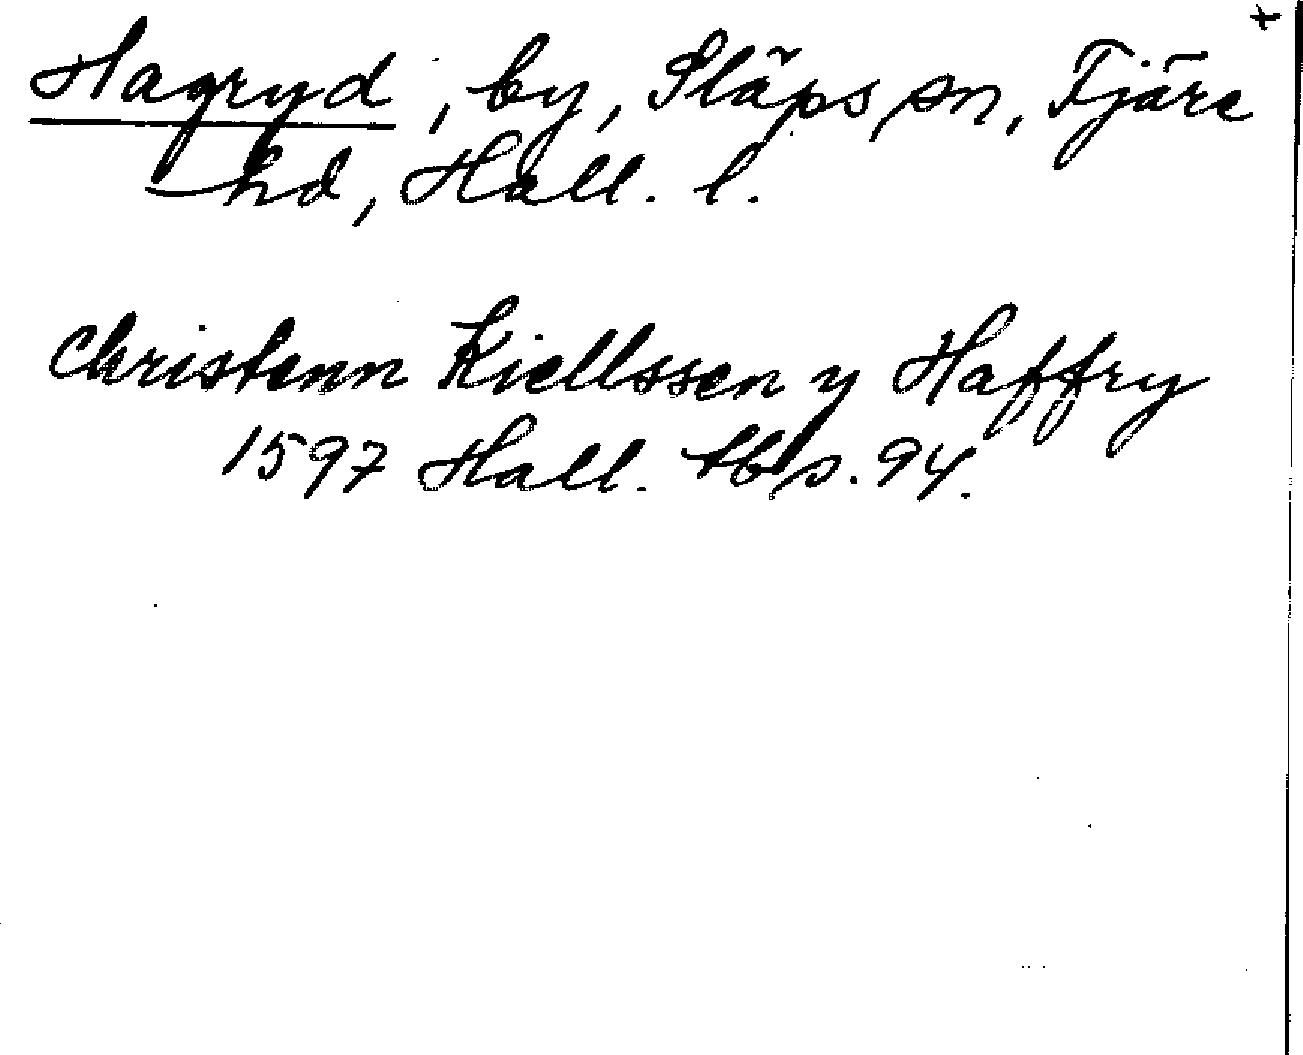 +
Hagryd, by, Släps sn, Fjäre
hd, Hall. l.
Christenn Kiellssen y Haffry
1597 Hall. tb s. 94.